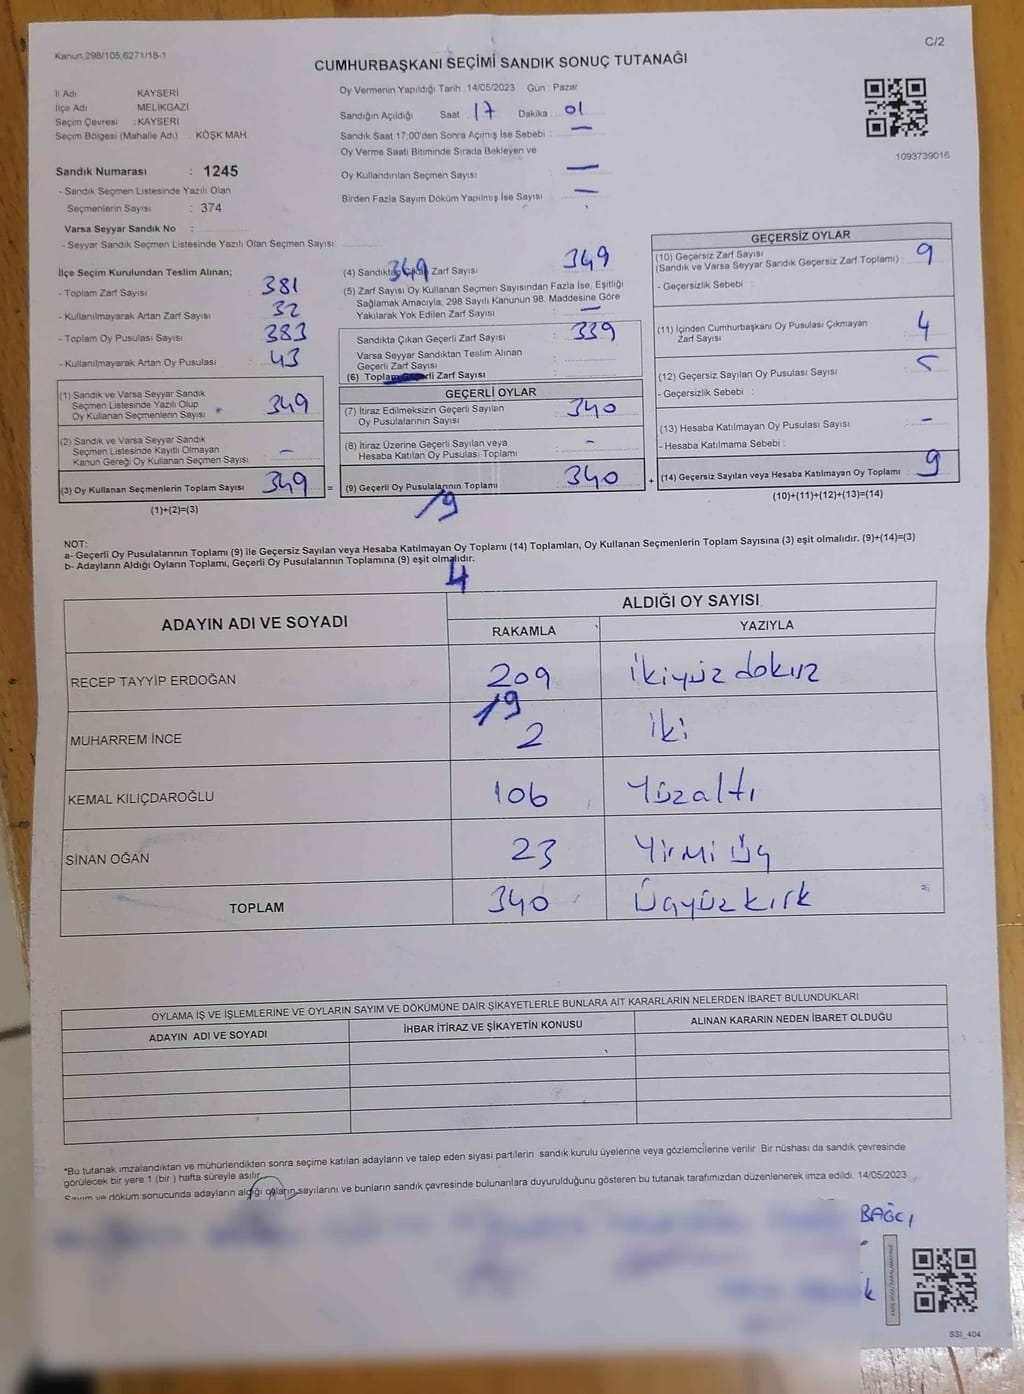 Kanun:298/105,6271/18-1
C/2
CUMHURBAŞKANI SEÇİMİ SANDIK SONUÇ TUTANAĞI
İl Adı KAYSERİ
İlçe Adı MELİKGAZİ
Seçim Çevresi : KAYSERİ
Seçim Bölgesi (Mahalle Adı) : KÖŞK MAH.
Sandık Numarası : 1245
- Sandık Seçmen Listesinde Yazılı Olan
Seçmenlerin Sayısı : 374
Varsa Seyyar Sandık No :
- Seyyar Sandık Seçmen Listesinde Yazılı Olan Seçmen Sayısı:
Oy Vermenin Yapıldığı Tarih : 14/05/2023 Gün : Pazar
Sandığın Açıldığı Saat : 17 Dakika : 01
Sandık Saat 17:00'den Sonra Açımış İse Sebebi : —
Oy Verme Saati Bitiminde Sırada Bekleyen ve
Oy Kullandırılan Seçmen Sayısı : —
Birden Fazla Sayım Döküm Yapılmış İse Sayısı : —
1093739016
İlçe Seçim Kurulundan Teslim Alınan;
- Toplam Zarf Sayısı : 381
- Kullanılmayarak Artan Zarf Sayısı : 32
- Toplam Oy Pusulası Sayısı : 383
- Kullanılmayarak Artan Oy Pusulası : 43
(1) Sandık ve Varsa Seyyar Sandık
Seçmen Listesinde Yazılı Olup
Oy Kullanan Seçmenlerin Sayısı : 349
(2) Sandık ve Varsa Seyyar Sandık
Seçmen Listesinde Kayıtlı Olmayan
Kanun Gereği Oy Kullanan Seçmen Sayısı : -
(3) Oy Kullanan Seçmenlerin Toplam Sayısı : 349 =
(1)+(2)=(3)
349
(4) Sandıktan Çıkan Zarf Sayısı : 349
(5) Zarf Sayısı Oy Kullanan Seçmen Sayısından Fazla İse, Eşitliği
Sağlamak Amacıyla; 298 Sayılı Kanunun 98. Maddesine Göre
Yakılarak Yok Edilen Zarf Sayısı : —
Sandıkta Çıkan Geçerli Zarf Sayısı : 339
Varsa Seyyar Sandıktan Teslim Alınan
Geçerli Zarf Sayısı :
(6) Toplam Geçerli Zarf Sayısı :
GEÇERLİ OYLAR
(7) İtiraz Edilmeksizin Geçerli Sayılan
Oy Pusulalarının Sayısı : 340
(8) İtiraz Üzerine Geçerli Sayılan veya
Hesaba Katılan Oy Pusulası Toplamı : -
(9) Geçerli Oy Pusulalarının Toplamı : 340 +
19
GEÇERSİZ OYLAR
(10) Geçersiz Zarf Sayısı
(Sandık ve Varsa Seyyar Sandık Geçersiz Zarf Toplamı) : 9
- Geçersizlik Sebebi :
(11) İçinden Cumhurbaşkanı Oy Pusulası Çıkmayan
Zarf Sayısı : 4
(12) Geçersiz Sayılan Oy Pusulası Sayısı : 5
- Geçersizlik Sebebi :
(13) Hesaba Katılmayan Oy Pusulası Sayısı : -
- Hesaba Katılmama Sebebi :
(14) Geçersiz Sayılan veya Hesaba Katılmayan Oy Toplamı : 9
(10)+(11)+(12)+(13)=(14)
NOT:
a- Geçerli Oy Pusulalarının Toplamı (9) ile Geçersiz Sayılan veya Hesaba Katılmayan Oy Toplamı (14) Toplamları, Oy Kullanan Seçmenlerin Toplam Sayısına (3) eşit olmalıdır. (9)+(14)=(3)
b- Adayların Aldığı Oyların Toplamı, Geçerli Oy Pusulalarının Toplamına (9) eşit olmalıdır.
4
ADAYIN ADI VE SOYADI ALDIĞI OY SAYISI
RAKAMLA YAZIYLA
RECEP TAYYİP ERDOĞAN 209 ikiyüz dokuz
19
MUHARREM İNCE 2 iki
KEMAL KILIÇDAROĞLU 106 Yüzaltı
SİNAN OĞAN 23 Yirmi üç
TOPLAM 340 Üçyüz kırk
OYLAMA İŞ VE İŞLEMLERİNE VE OYLARIN SAYIM VE DÖKÜMÜNE DAİR ŞİKAYETLERLE BUNLARA AİT KARARLARIN NELERDEN İBARET BULUNDUKLARI
ADAYIN ADI VE SOYADI İHBAR İTİRAZ VE ŞİKAYETİN KONUSU ALINAN KARARIN NEDEN İBARET OLDUĞU
*Bu tutanak imzalandıktan ve mühürlendikten sonra seçime katılan adayların ve talep eden siyasi partilerin sandık kurulu üyelerine veya gözlemcilerine verilir. Bir nüshası da sandık çevresinde
görülecek bir yere 1 (bir) hafta süreyle asılır.
Sayım ve döküm sonucunda adayların aldığı oyların sayılarını ve bunların sandık çevresinde bulunanlara duyurulduğunu gösteren bu tutanak tarafımızdan düzenlenerek imza edildi. 14/05/2023
BAĞCI
SSI_404